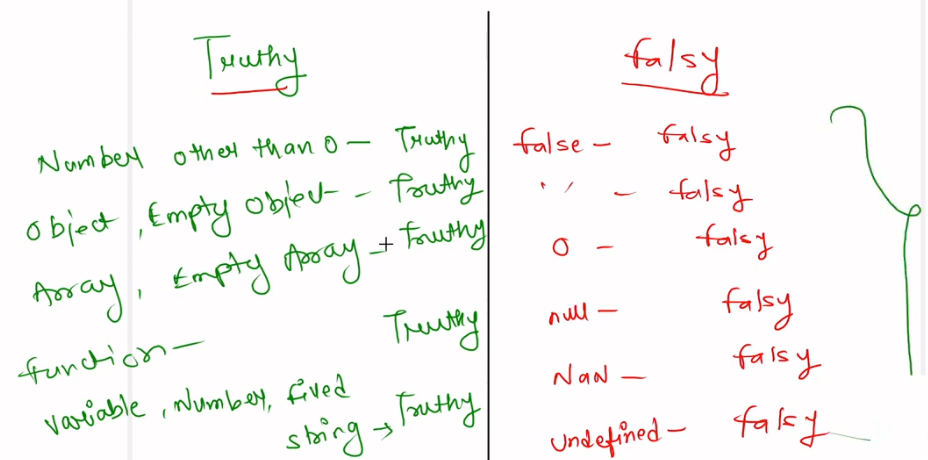 Truthy
Number other than 0 - Truthy
Object, Empty Object - Truthy
Array, Empty Array - Truthy
function - Truthy
variable, Number, fixed
string → Truthy
falsy
false - falsy
' ' - falsy
0 - falsy
null - falsy
NaN - falsy
undefined - falsy